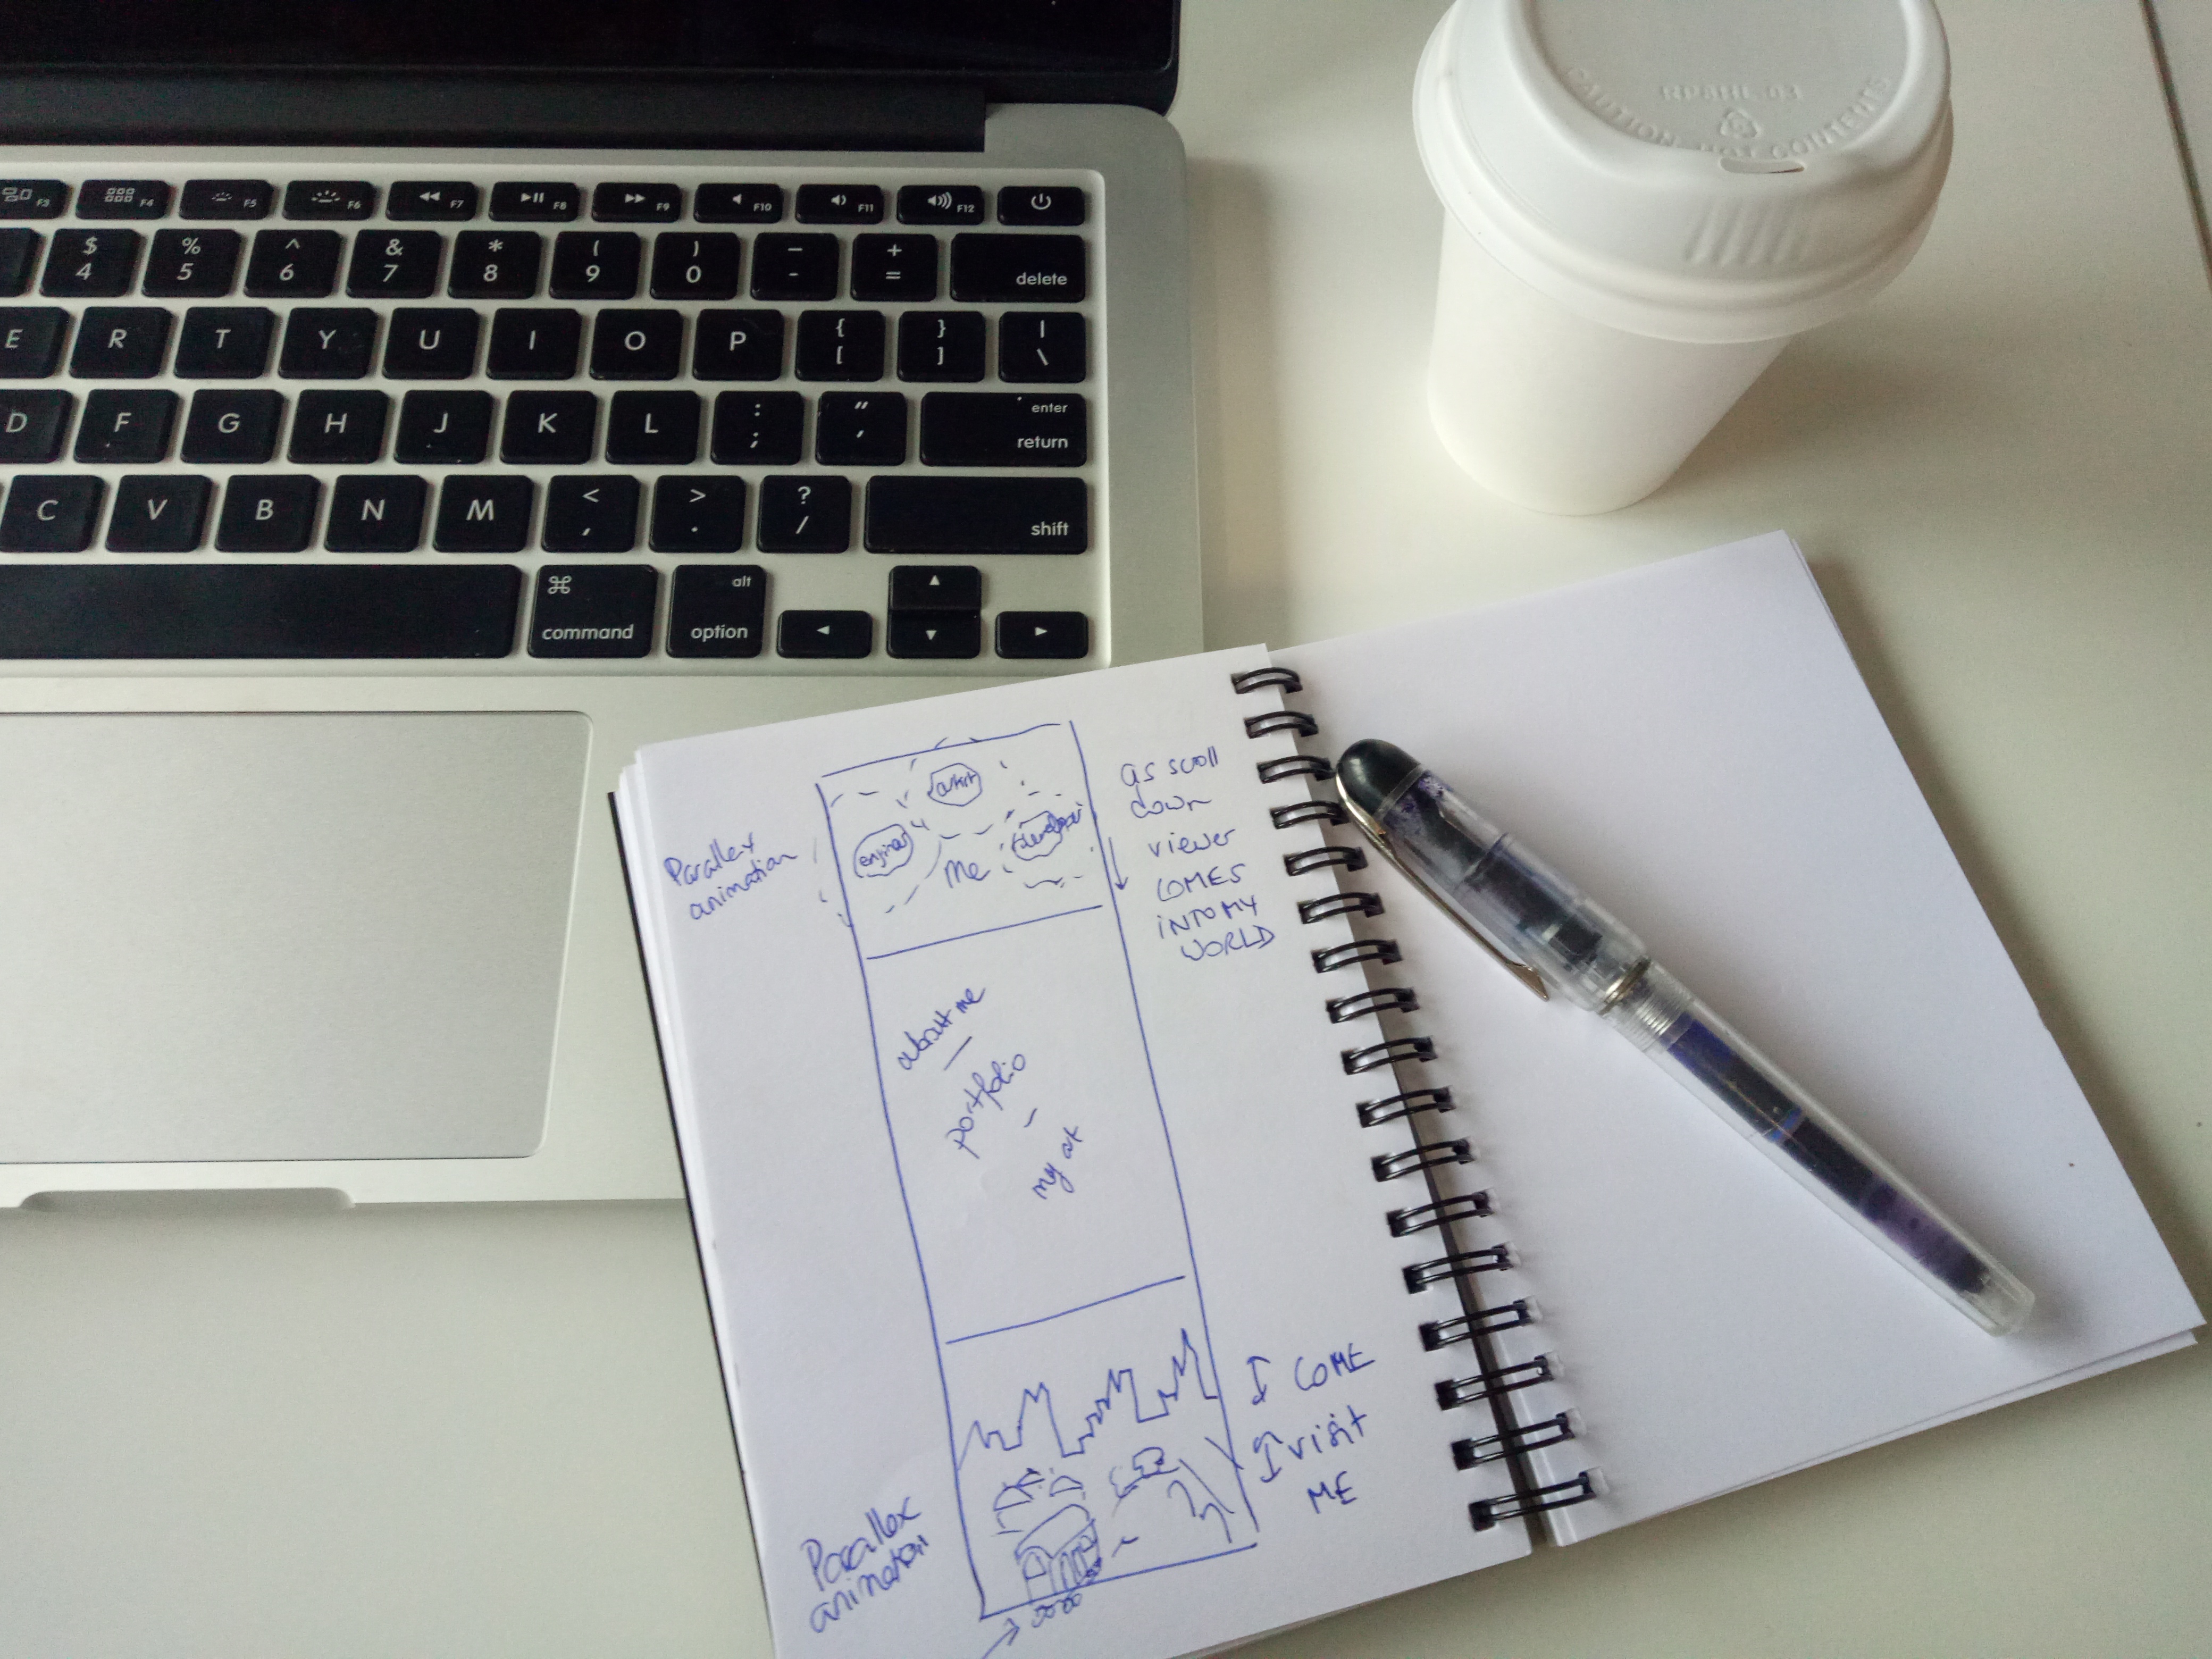 F3 F4 F5 F6 F7 F8 F9 F10 F11 F12
$ % ^ & * ( ) — +
4 5 6 7 8 9 0 - = delete
E R T Y U I O P { [ } ] | \
D F G H J K L : ; " ' enter return
C V B N M < , > . ? / shift
⌘ command alt option
CAUTION HOT CONTENTS
Parallex
animation
artist
enginer
Me
as scroll
down
viewer
COMES
INTO MY
WORLD
about me
—
portfolio
—
my art
COME
visit
ME
Parallex
animation